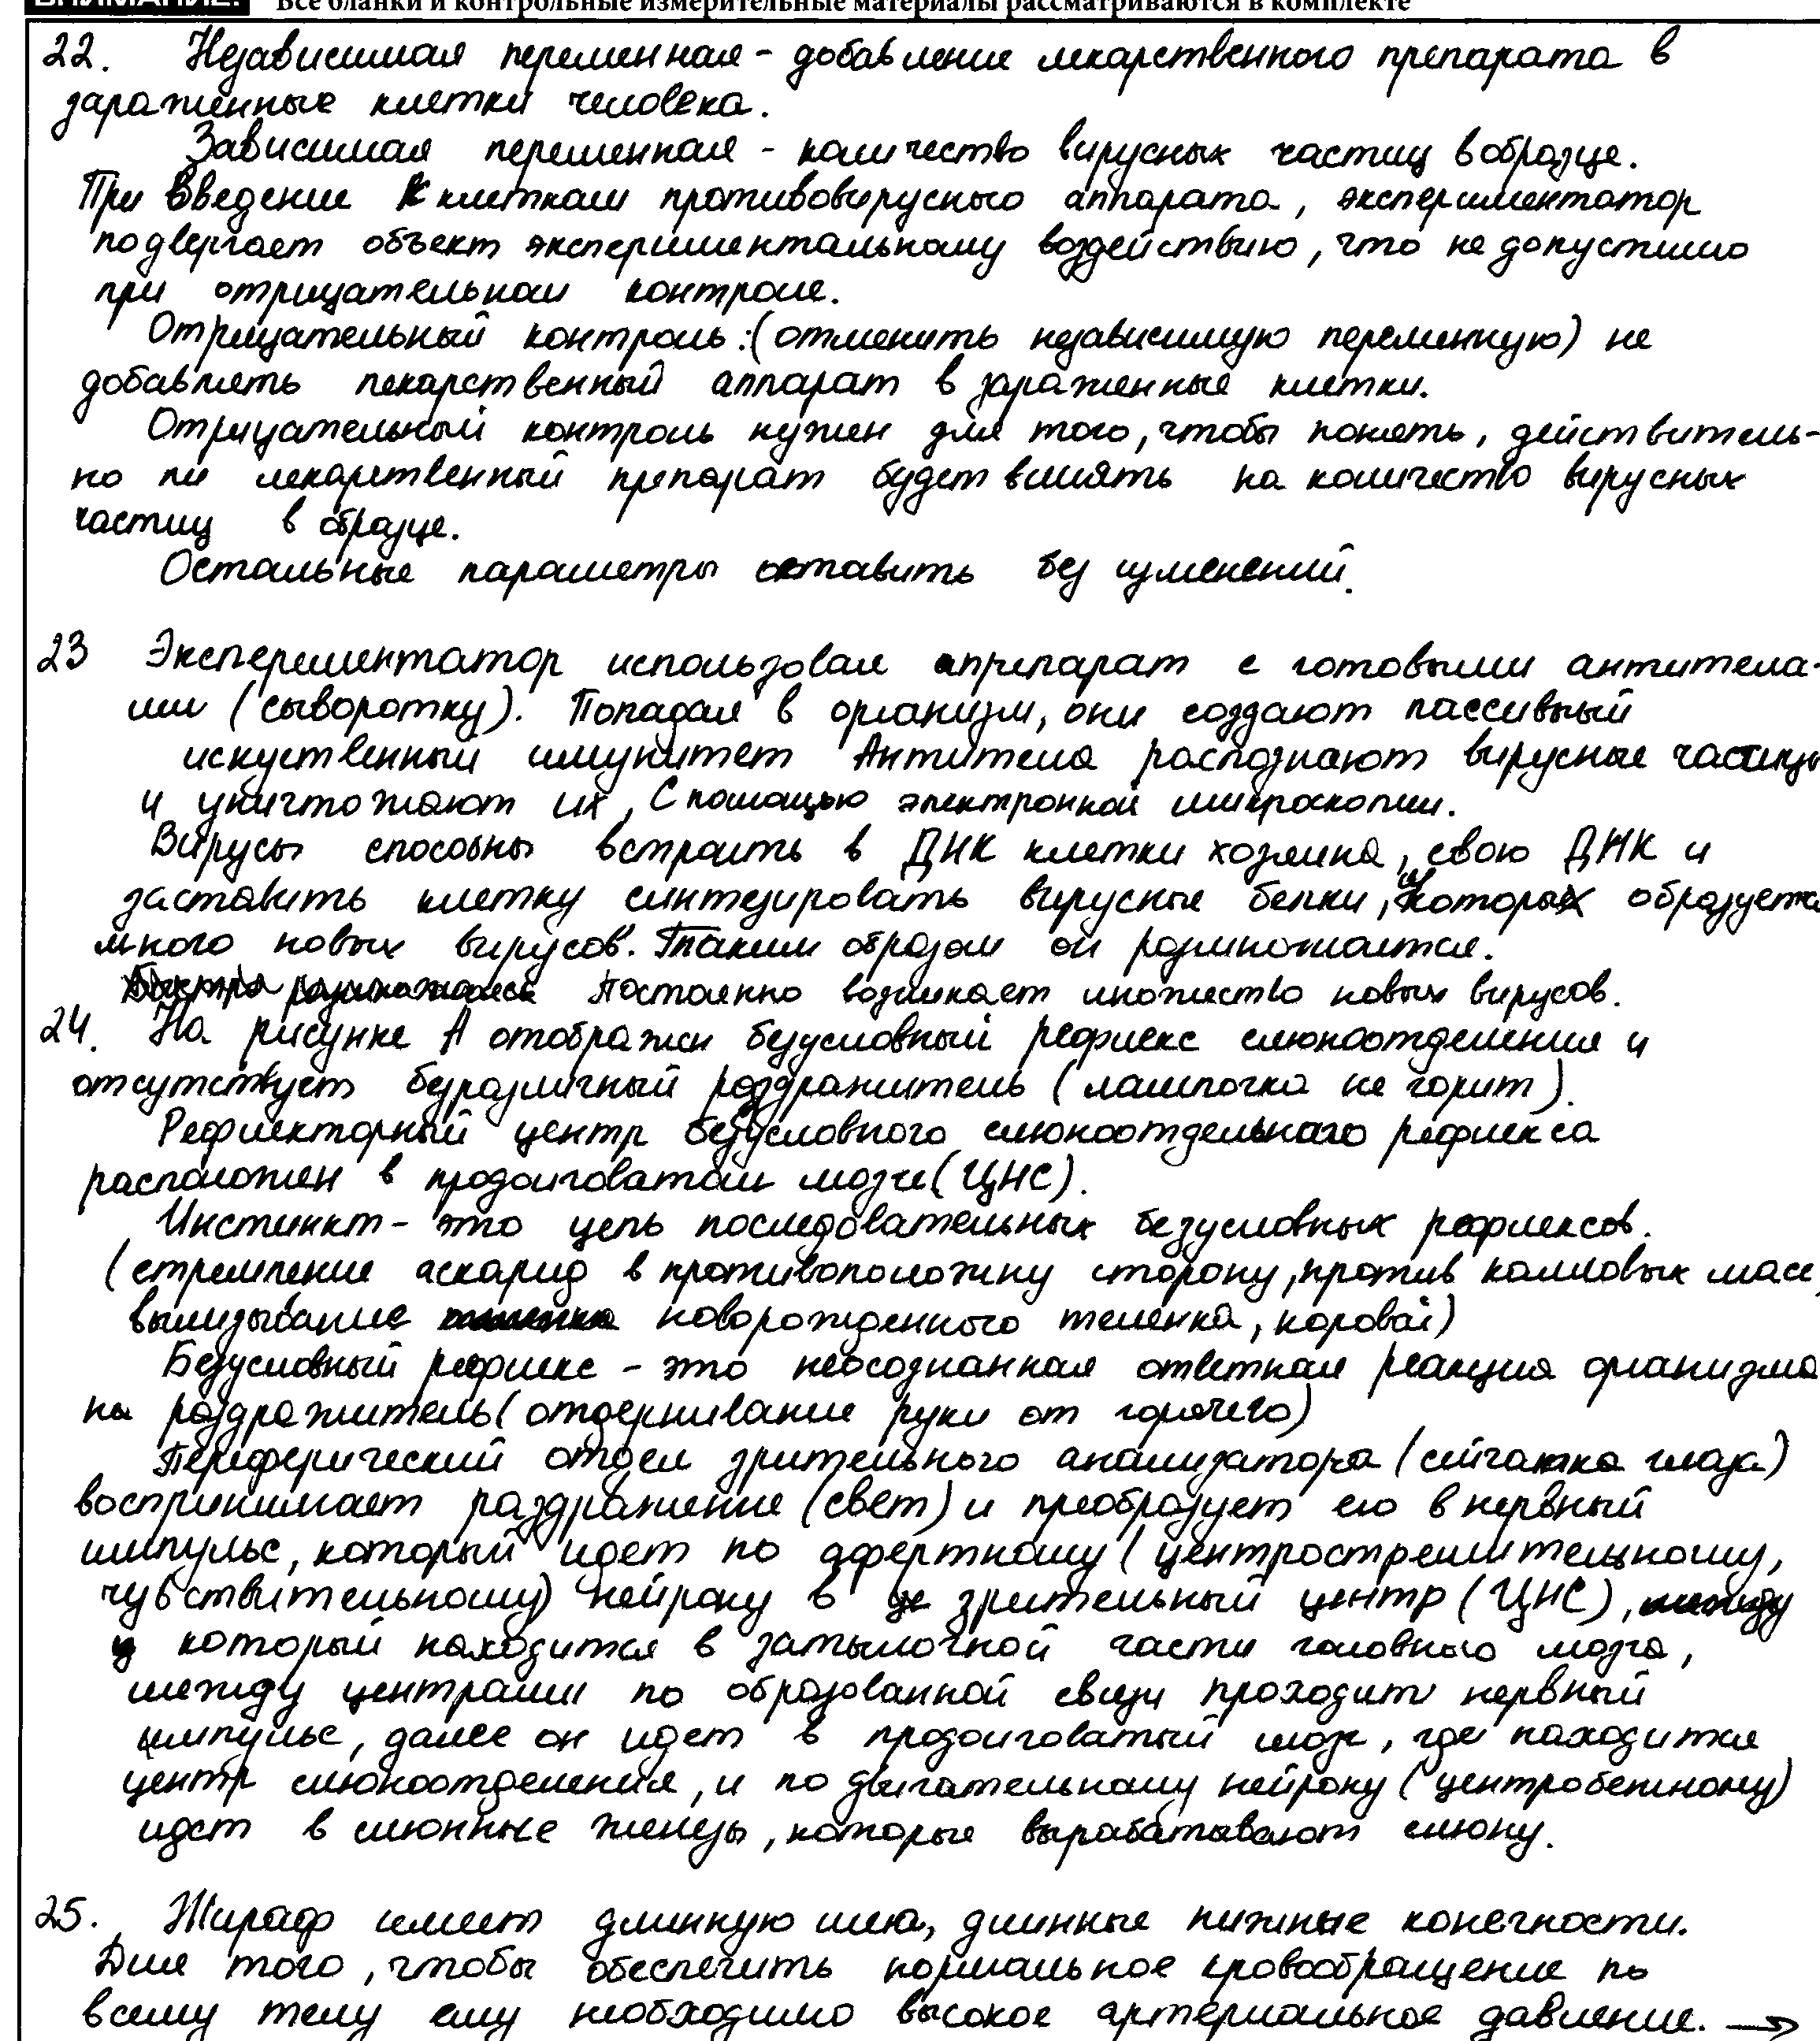 ВНИМАНИЕ! Все бланки и контрольные измерительные материалы рассматриваются в комплекте
22. Независимая переменная - добавление лекарственного препарата в
зараженные клетки человека.
Зависимая переменная - количество вирусных частиц в образце.
При введение к клеткам противовирусного аппарата, экспериментатор
подвергает объект экспериментальному воздействию, что не допустимо
при отрицательном контроле.
Отрицательный контроль: (отменить независимую переменную) не
добавлять лекарственный аппарат в зараженные клетки.
Отрицательный контроль нужен для того, чтобы понять, действитель-
но ли лекарственный препарат будет влиять на количество вирусных
частиц в образце.
Остальные параметры оставить без изменений.
23 Эксперементатор использовал препарат с готовыми антитела-
ми (сыворотку). Попадая в организм, они создают пассивный
искуственный имунитет Антитела распознают вирусные частицы
и уничтожают их, С помощью электронной микроскопии.
Вирусы способны встроить в ДНК клетки хозяина, свою ДНК и
заставить клетку синтезировать вирусные белки, из которых образуется
много новых вирусов. Таким образом он размножается.
Быстро размножаясь Постоянно возникает множество новых вирусов.
24. На рисунке А отображён безусловный рефлекс слюноотделения и
отсутствует безразличный раздражитель (лампочка не горит).
Рефлекторный центр безусловного слюноотдельного рефлекса
расположен в продолговатом мозге (ЦНС).
Инстинкт - это цепь последовательных безусловных рефлексов.
(стремление аскарид в противоположну сторону, против каловых масс,
вылизывание новорожденного теленка, коровой)
Безусловный рефлекс - это неосознанная ответная реакция организма
на раздражитель (отдергивание руки от горячего)
Периферический отдел зрительного анализатора (сетчатка глаза)
воспринимает раздражение (свет) и преобразует его в нервный
импульс, который идет по афертному (центростремительному,
чувствительному) нейрону в зрительный центр (ЦНС), между
который находится в затылочной части головного мозга,
между центрами по образованной связи проходит нервный
импульс, далее он идет в продолговатый мозг, где находится
центр слюноотделения, и по двигательному нейрону (центробежному)
идет в слюнные железы, которые вырабатывают слюну.
25. Жираф имеет длинную шею, длинные нижние конечности.
Для того, чтобы обеспечить нормальное кровообращение по
всему телу ему необходимо высокое артериальное давление. →